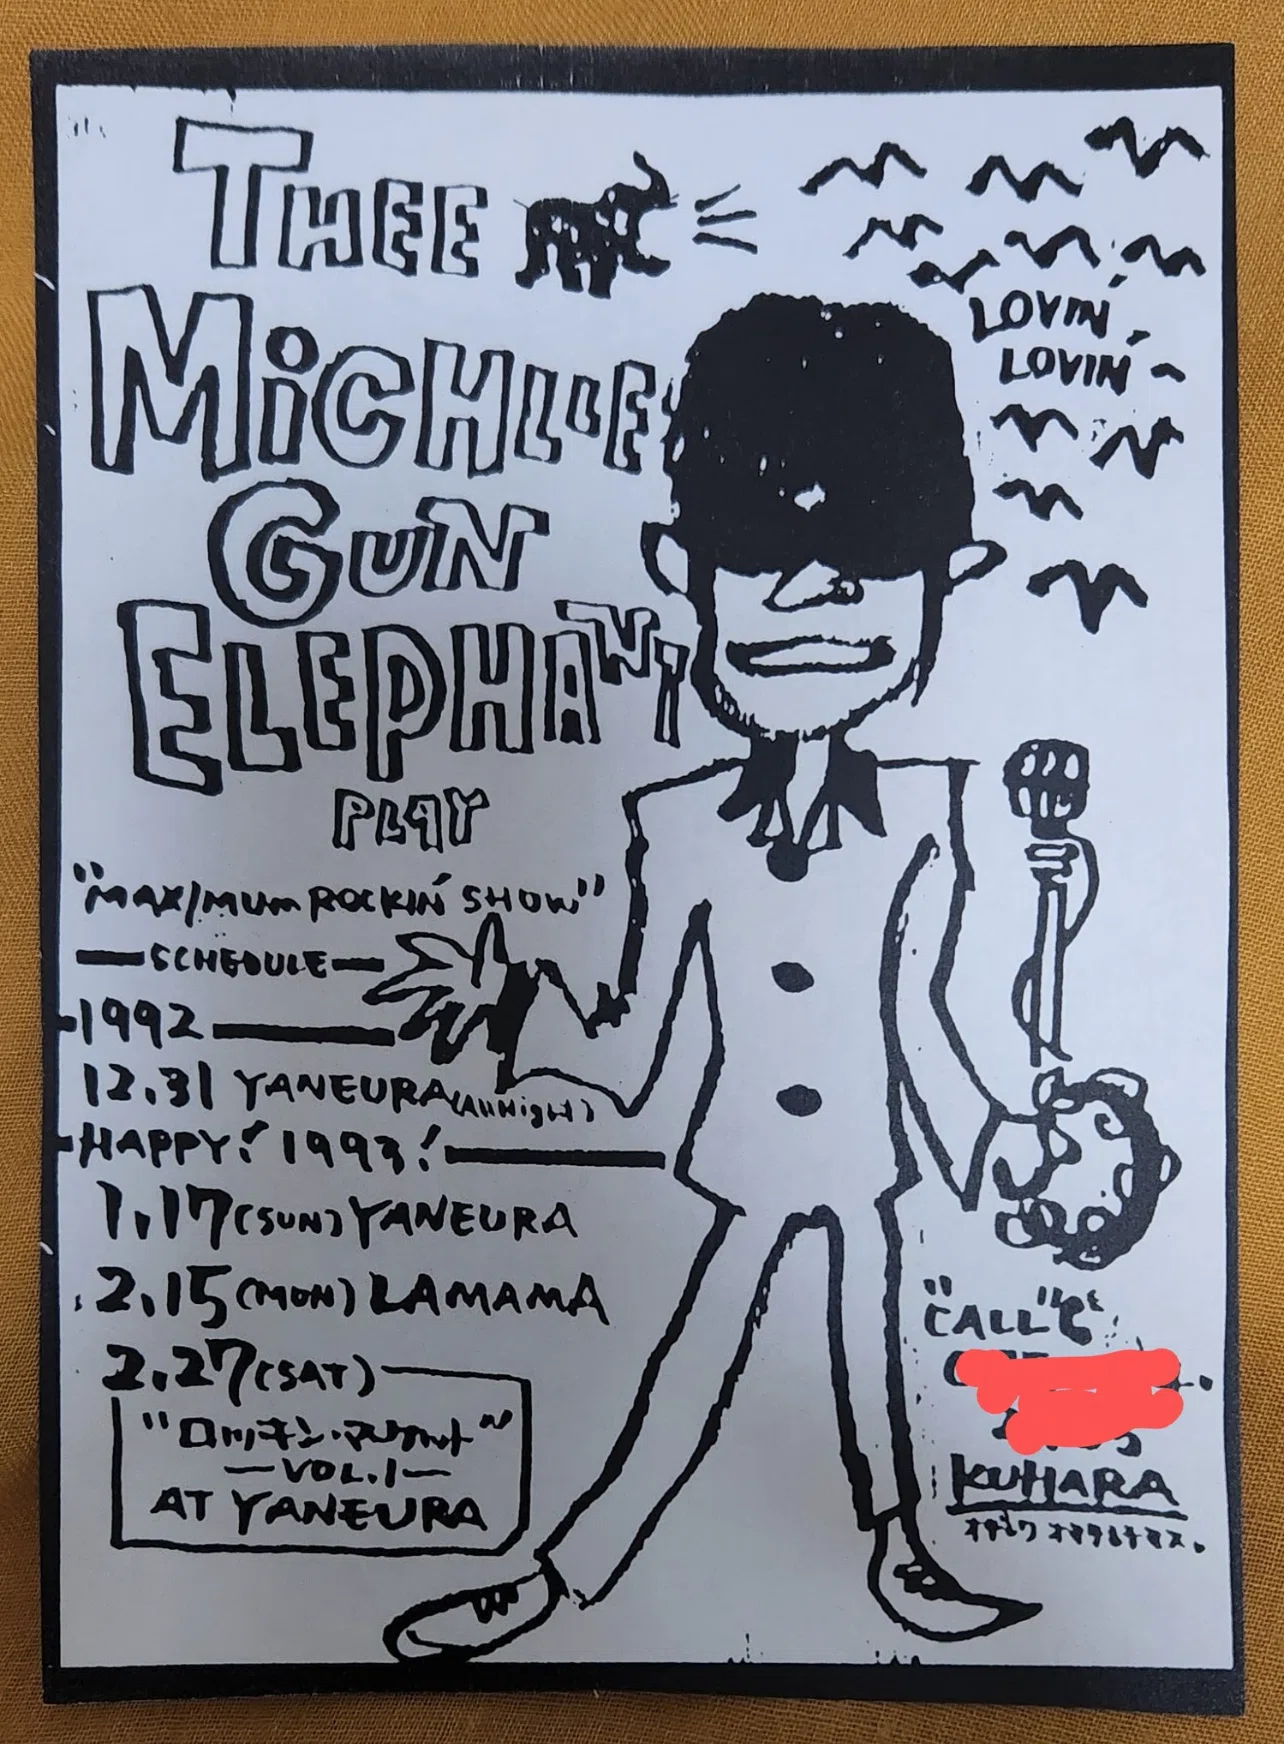 THEE
MiCHLLE
GUN
ELEPHANT
PLAY
"MAXIMUM ROCKIN' SHOW"
SCHEDULE
1992
12.31 YANEURA (All Night)
HAPPY! 1993!
1.17 (SUN) YANEURA
2.15 (MON) LAMAMA
2.27 (SAT)
"ロッキン・マーケット"
—VOL.1—
AT YANEURA
LOVIN'
LOVIN'
"CALL"
KUHARA